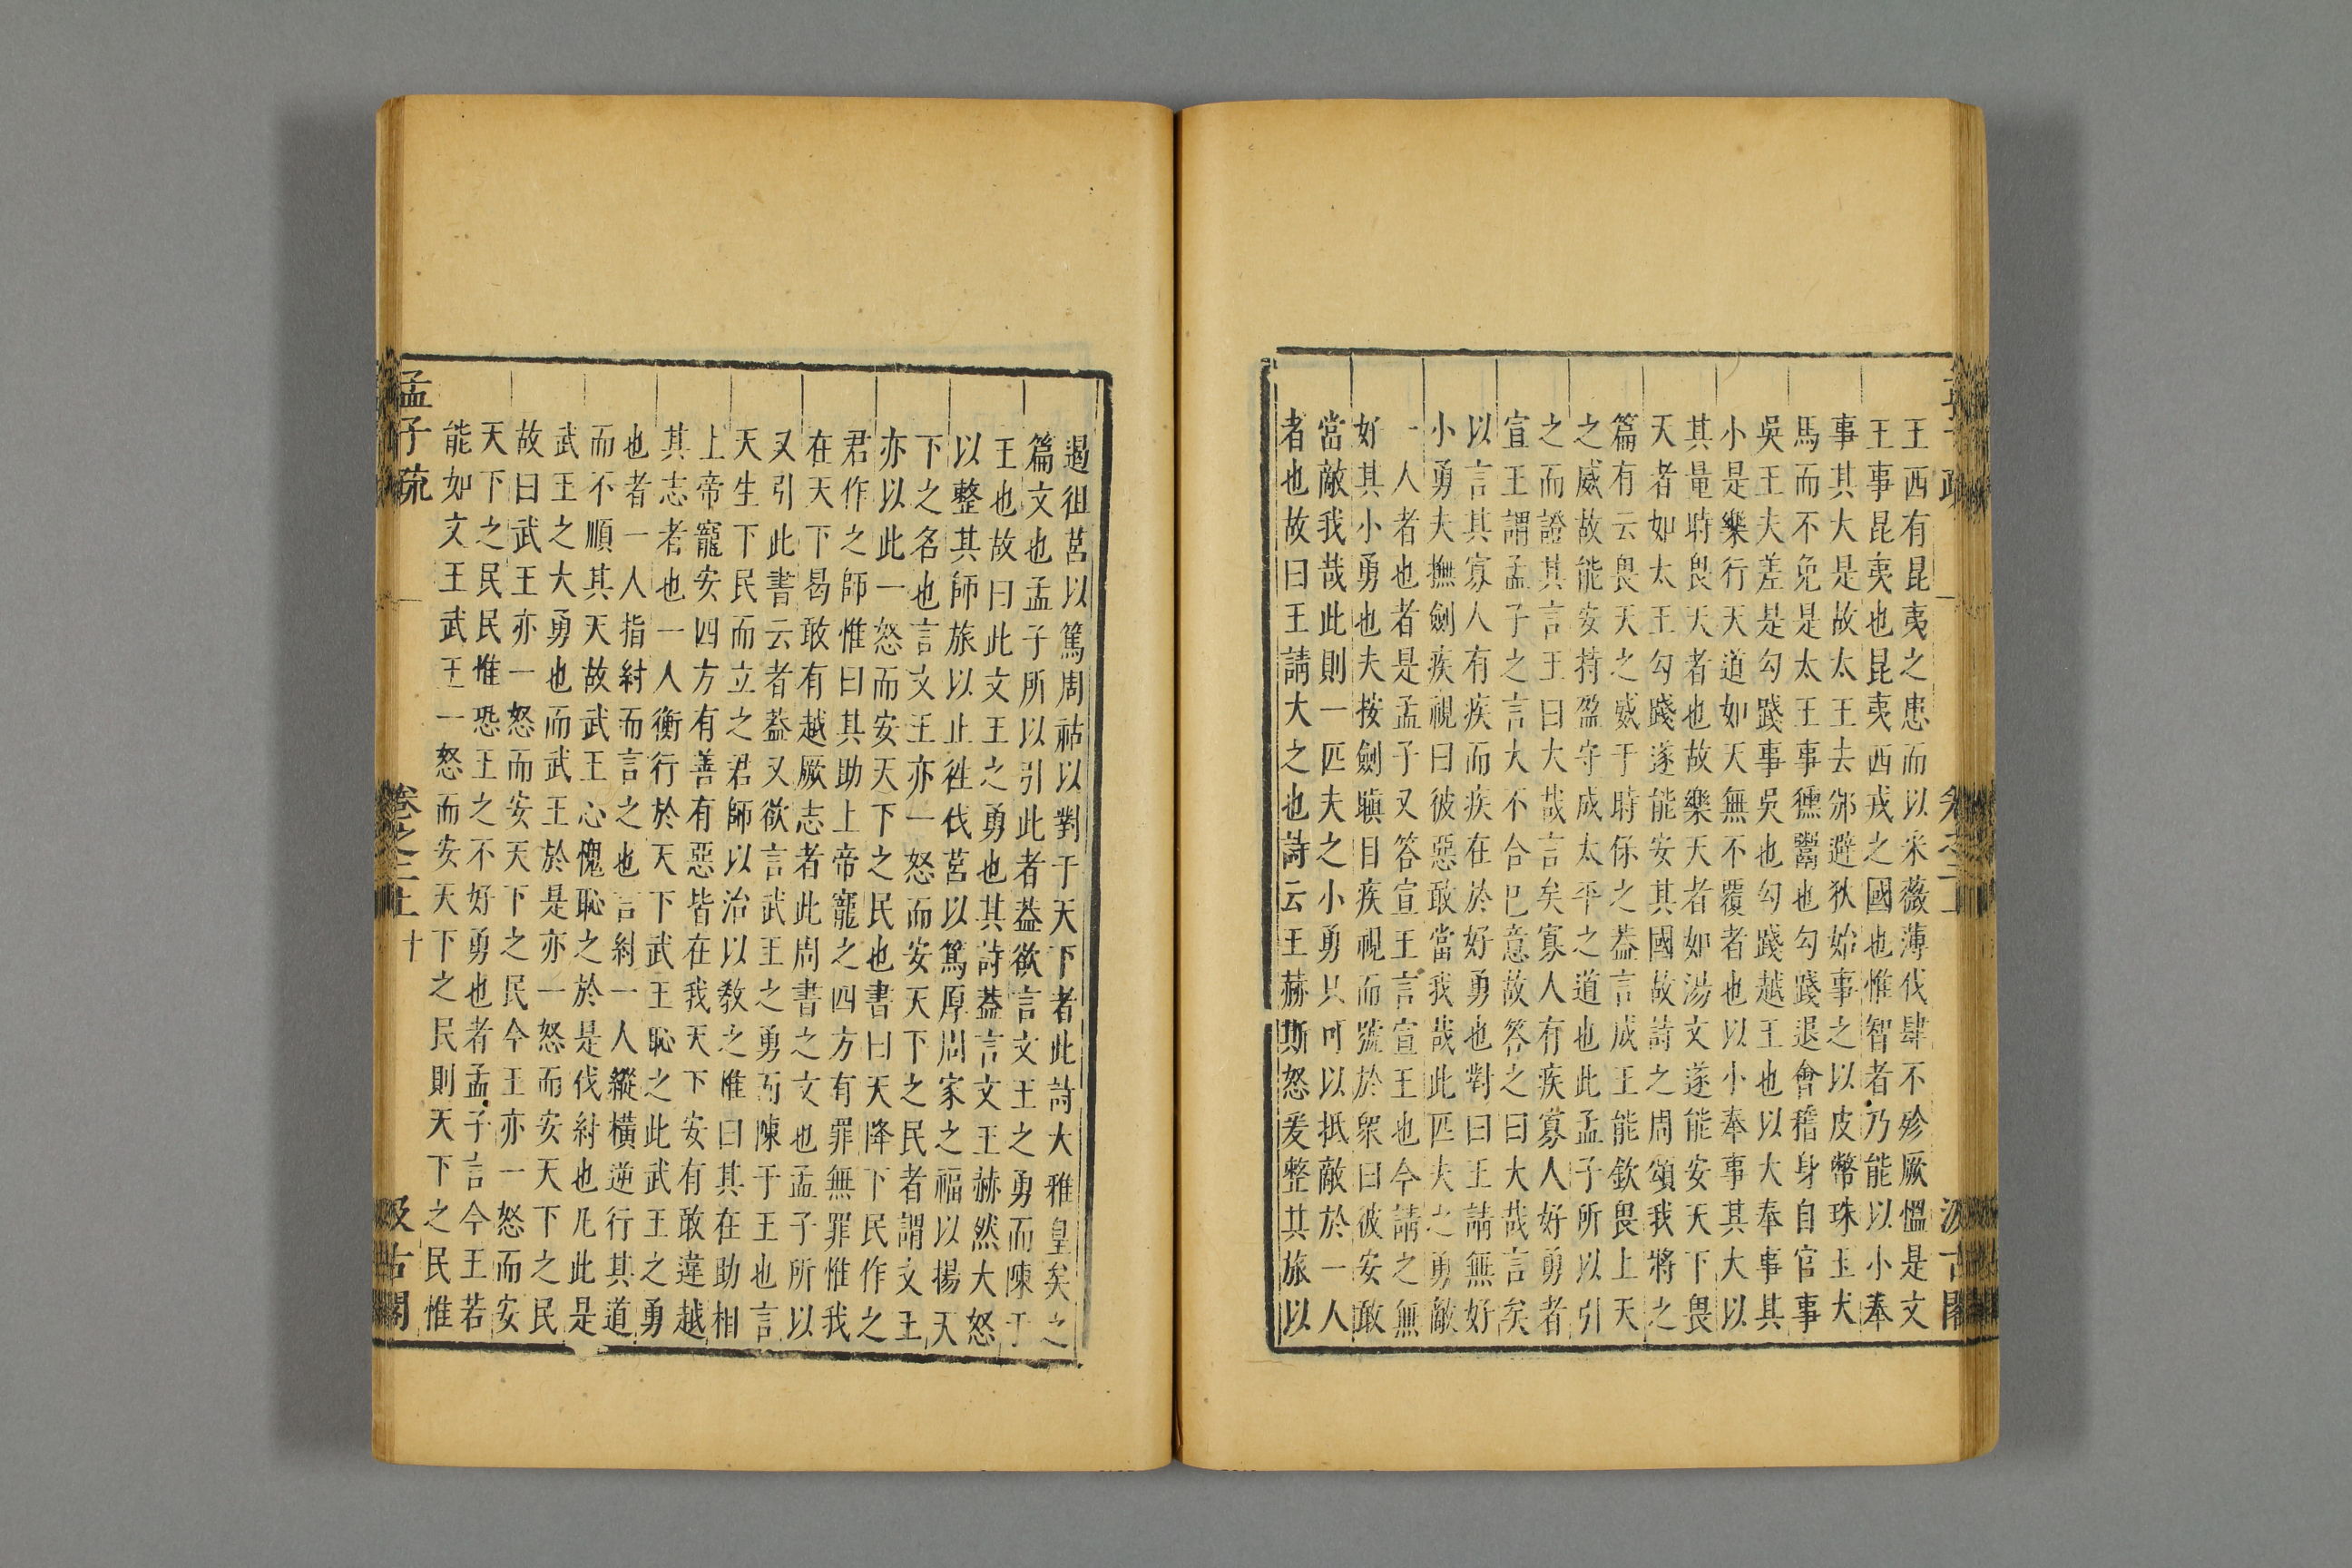 王西有昆夷之患而以采薇薄伐肆不殄厥慍是文
王事昆夷也昆夷西戎之國也惟智者乃能以小奉
事其大是故太王去邠避狄始事之以皮幣珠玉犬
馬而不免是太王事獯鬻也勾踐退會稽身自官事
吳王夫差是勾踐事吳也勾踐越王也以大奉事其
小是樂行天道如天無不覆者也以小奉事其大以
其量時畏天者也故樂天者如湯文遂能安天下畏
天者如太王勾踐遂能安其國故詩之周頌我將之
篇有云畏天之威于時保之蓋言成王能欽畏上天
之威故能安持盈守成太平之道也此孟子所以引
之而證其言王曰大哉言矣寡人有疾寡人好勇者
宣王謂孟子之言大不合已意故答之曰大哉言矣
以言其寡人有疾而疾在於好勇也對曰王請無好
小勇夫撫劍疾視曰彼惡敢當我哉此匹夫之勇敵
一人者也者是孟子又答宣王言宣王也今請之無
好其小勇也夫按劍瞋目疾視而號於眾曰彼安敢
當敵我哉此則一匹夫之小勇只可以抵敵於一人
者也故曰王請大之也詩云王赫斯怒爰整其旅以
遏徂莒以篤周祜以對于天下者此詩大雅皇矣之
篇文也孟子所以引此者葢欲言文王之勇而陳于
王也故曰此文王之勇也其詩葢言文王赫然大怒
以整其師旅以止徃伐莒以篤厚周家之福以揚天
下之名也言文王亦一怒而安天下之民者謂文王
亦以此一怒而安天下之民也書曰天降下民作之
君作之師惟曰其助上帝寵之四方有罪無罪惟我
在天下曷敢有越厥志者此周書之文也孟子所以
又引此書云者葢又欲言武王之勇而陳于王也言
天生下民而立之君師以治以教之惟曰其在助相
上帝寵安四方有善有惡皆在我天下安有敢違越
其志者也一人衡行於天下武王恥之此武王之勇
也者一人指紂而言之也言紂一人縱橫逆行其道
而不順其天故武王心愧恥之於是伐紂也凡此是
武王之大勇也而武王於是亦一怒而安天下之民
故曰武王亦一怒而安天下之民今王亦一怒而安
天下之民民惟恐王之不好勇也者孟子言今王若
能如文王武王一怒而安天下之民則天下之民惟
孟子疏 卷之二上 十 汲古閣